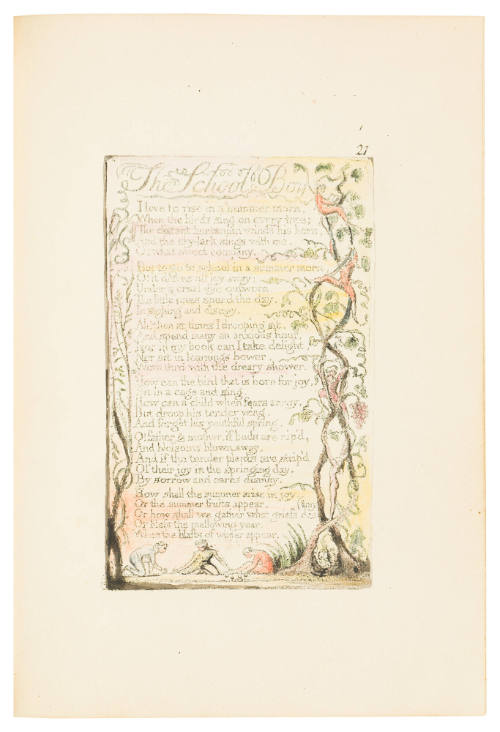 The School Boy
I love to rise in a summer morn,
When the birds sing on every tree;
The distant huntsman winds his horn,
And the sky-lark sings with me.
O! what sweet company.
But to go to school in a summer morn
O! it drives all joy away;
Under a cruel eye outworn
The little ones spend the day,
In sighing and dismay.
Ah! then at times I drooping sit,
And spend many an anxious hour,
Nor in my book can I take delight,
Nor sit in learnings bower,
Worn thro' with the dreary shower.
How can the bird that is born for joy,
Sit in a cage and sing.
How can a child when fears annoy,
But droop his tender wing,
And forget his youthful spring.
O! father & mother, if buds are nip'd,
And blossoms blown away,
And if the tender plants are strip'd
Of their joy in the springing day,
By sorrow and cares dismay,
How shall the summer arise in joy
Or the summer fruits appear.
Or how shall we gather what griefs des
(troy
Or bless the mellowing year,
When the blasts of winter appear.